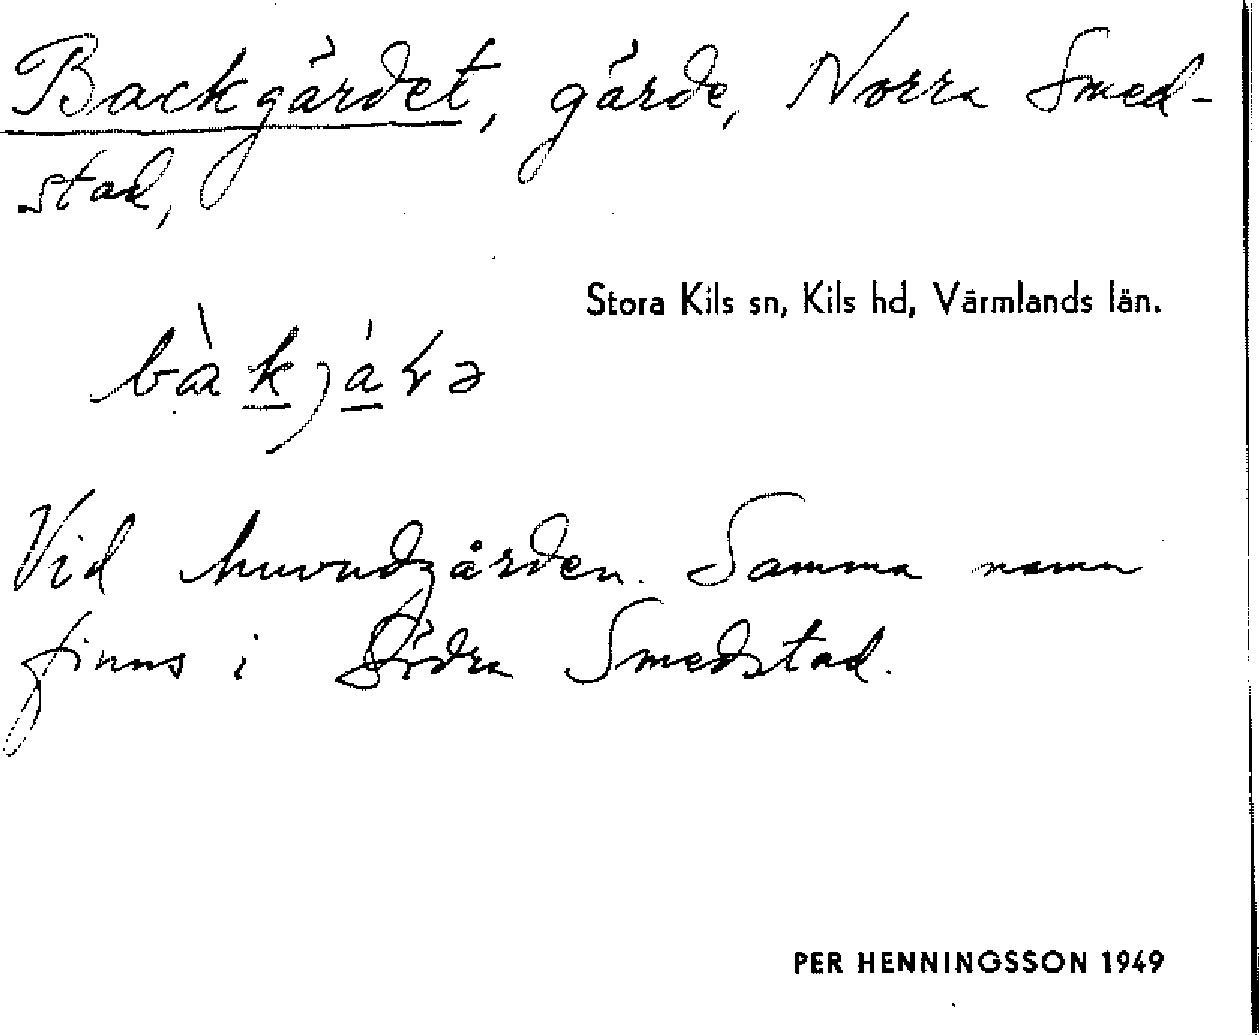 Backgärdet, gärde, Norra Smed-
stad,
Stora Kils sn, Kils hd, Värmlands län.
Vid huvudgården. Samma namn
finns i Södra Smedstad.
PER HENNINGSSON 1949